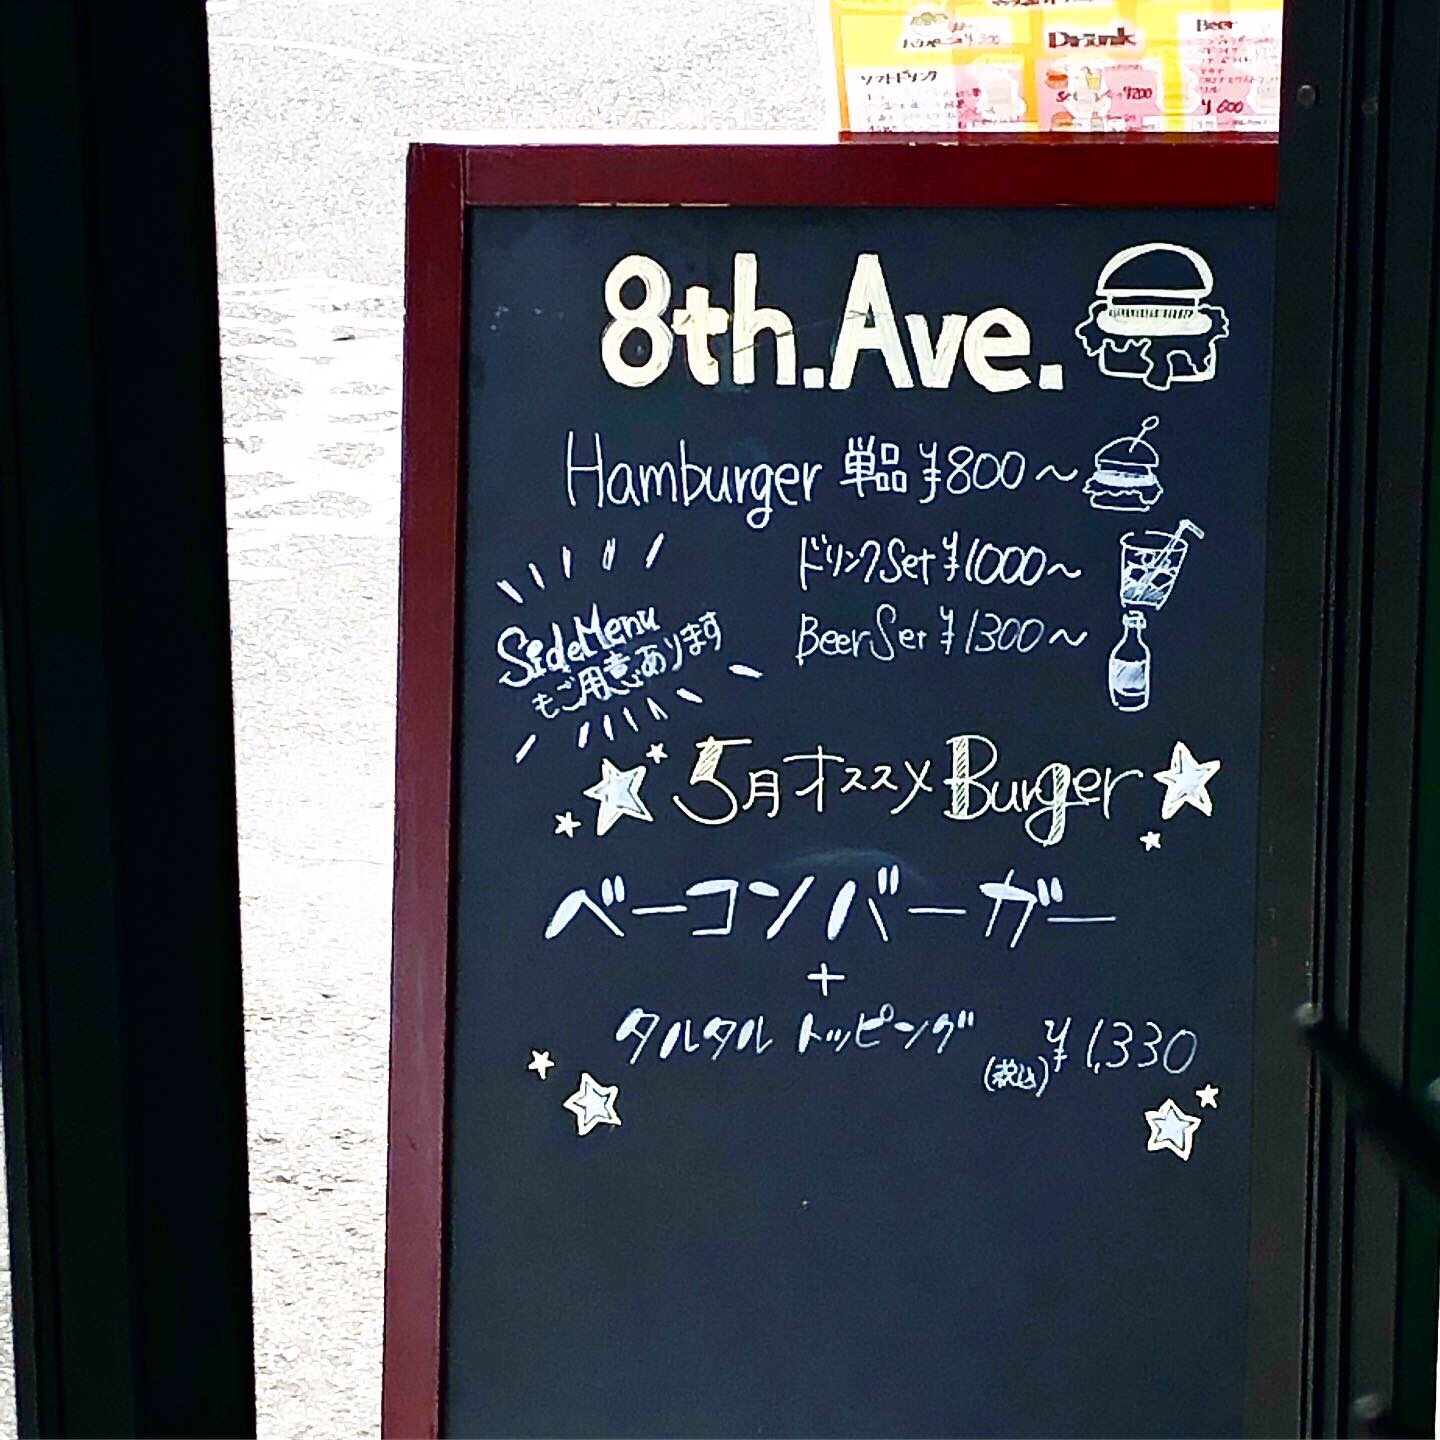 Drink
Beer
ソフトドリンク
¥200
¥600
8th.Ave.
Hamburger 単品 ¥800〜
ドリンクSet ¥1000〜
BeerSet ¥1300〜
SideMenu
もご用意あります
5月オススメ Burger
ベーコンバーガー
+
タルタルトッピング (税込) ¥1,330